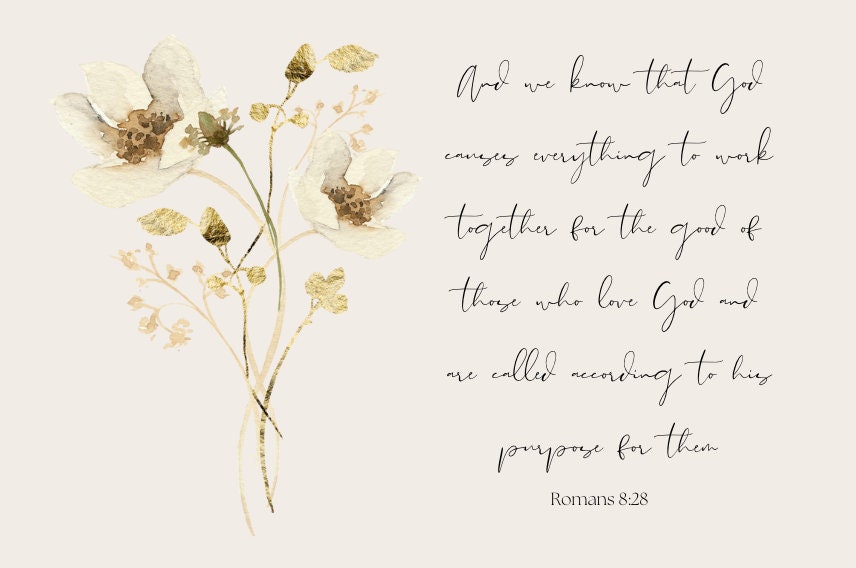 And we know that God
causes everything to work
together for the good of
those who love God and
are called according to his
purpose for them
Romans 8:28